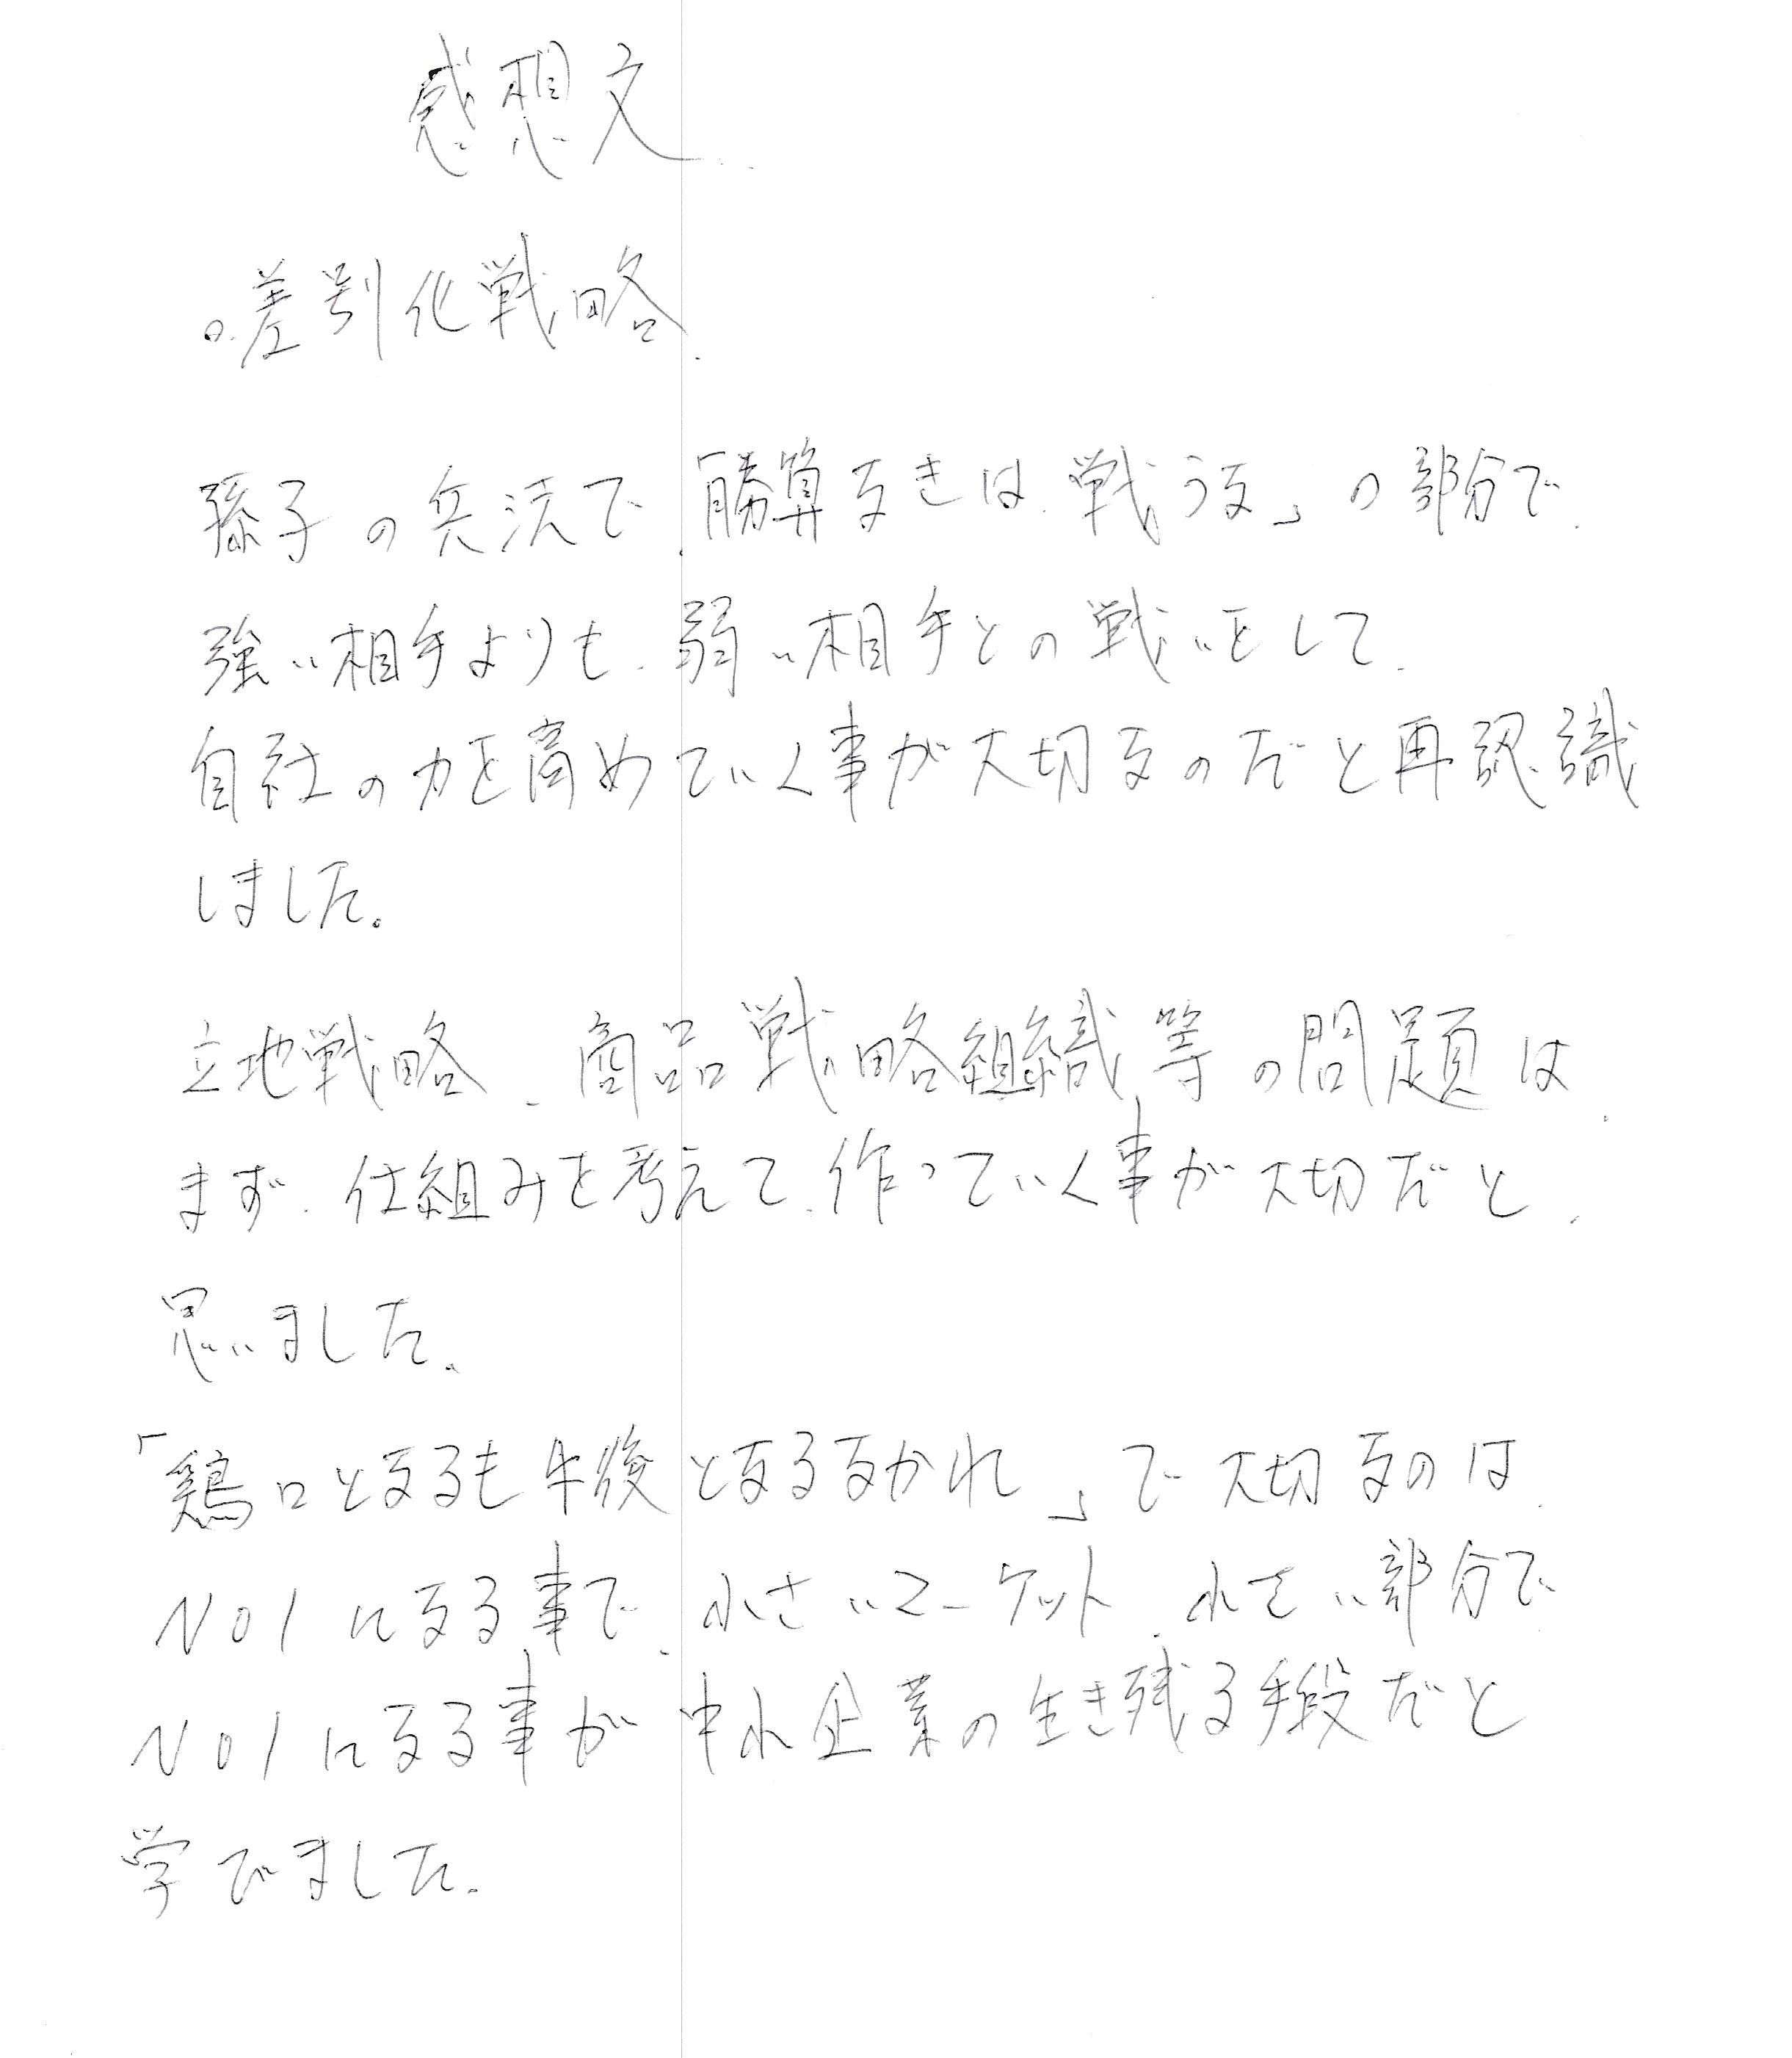 感想文
○差別化戦略
孫子の兵法で、「勝算なきは戦うな」の部分で、
強い相手よりも、弱い相手との戦いをして、
自社の力を高めていく事が大切なのだと再認識
しました。
立地戦略、商品戦略組織等の問題は、
まず、仕組みを考えて、作っていく事が大切だと、
思いました。
「鶏口となるも牛後となるなかれ」で大切なのは、
NO1になる事で、小さいマーケット、小さい部分で
NO1になる事が中小企業の生き残る手段だと
学びました。